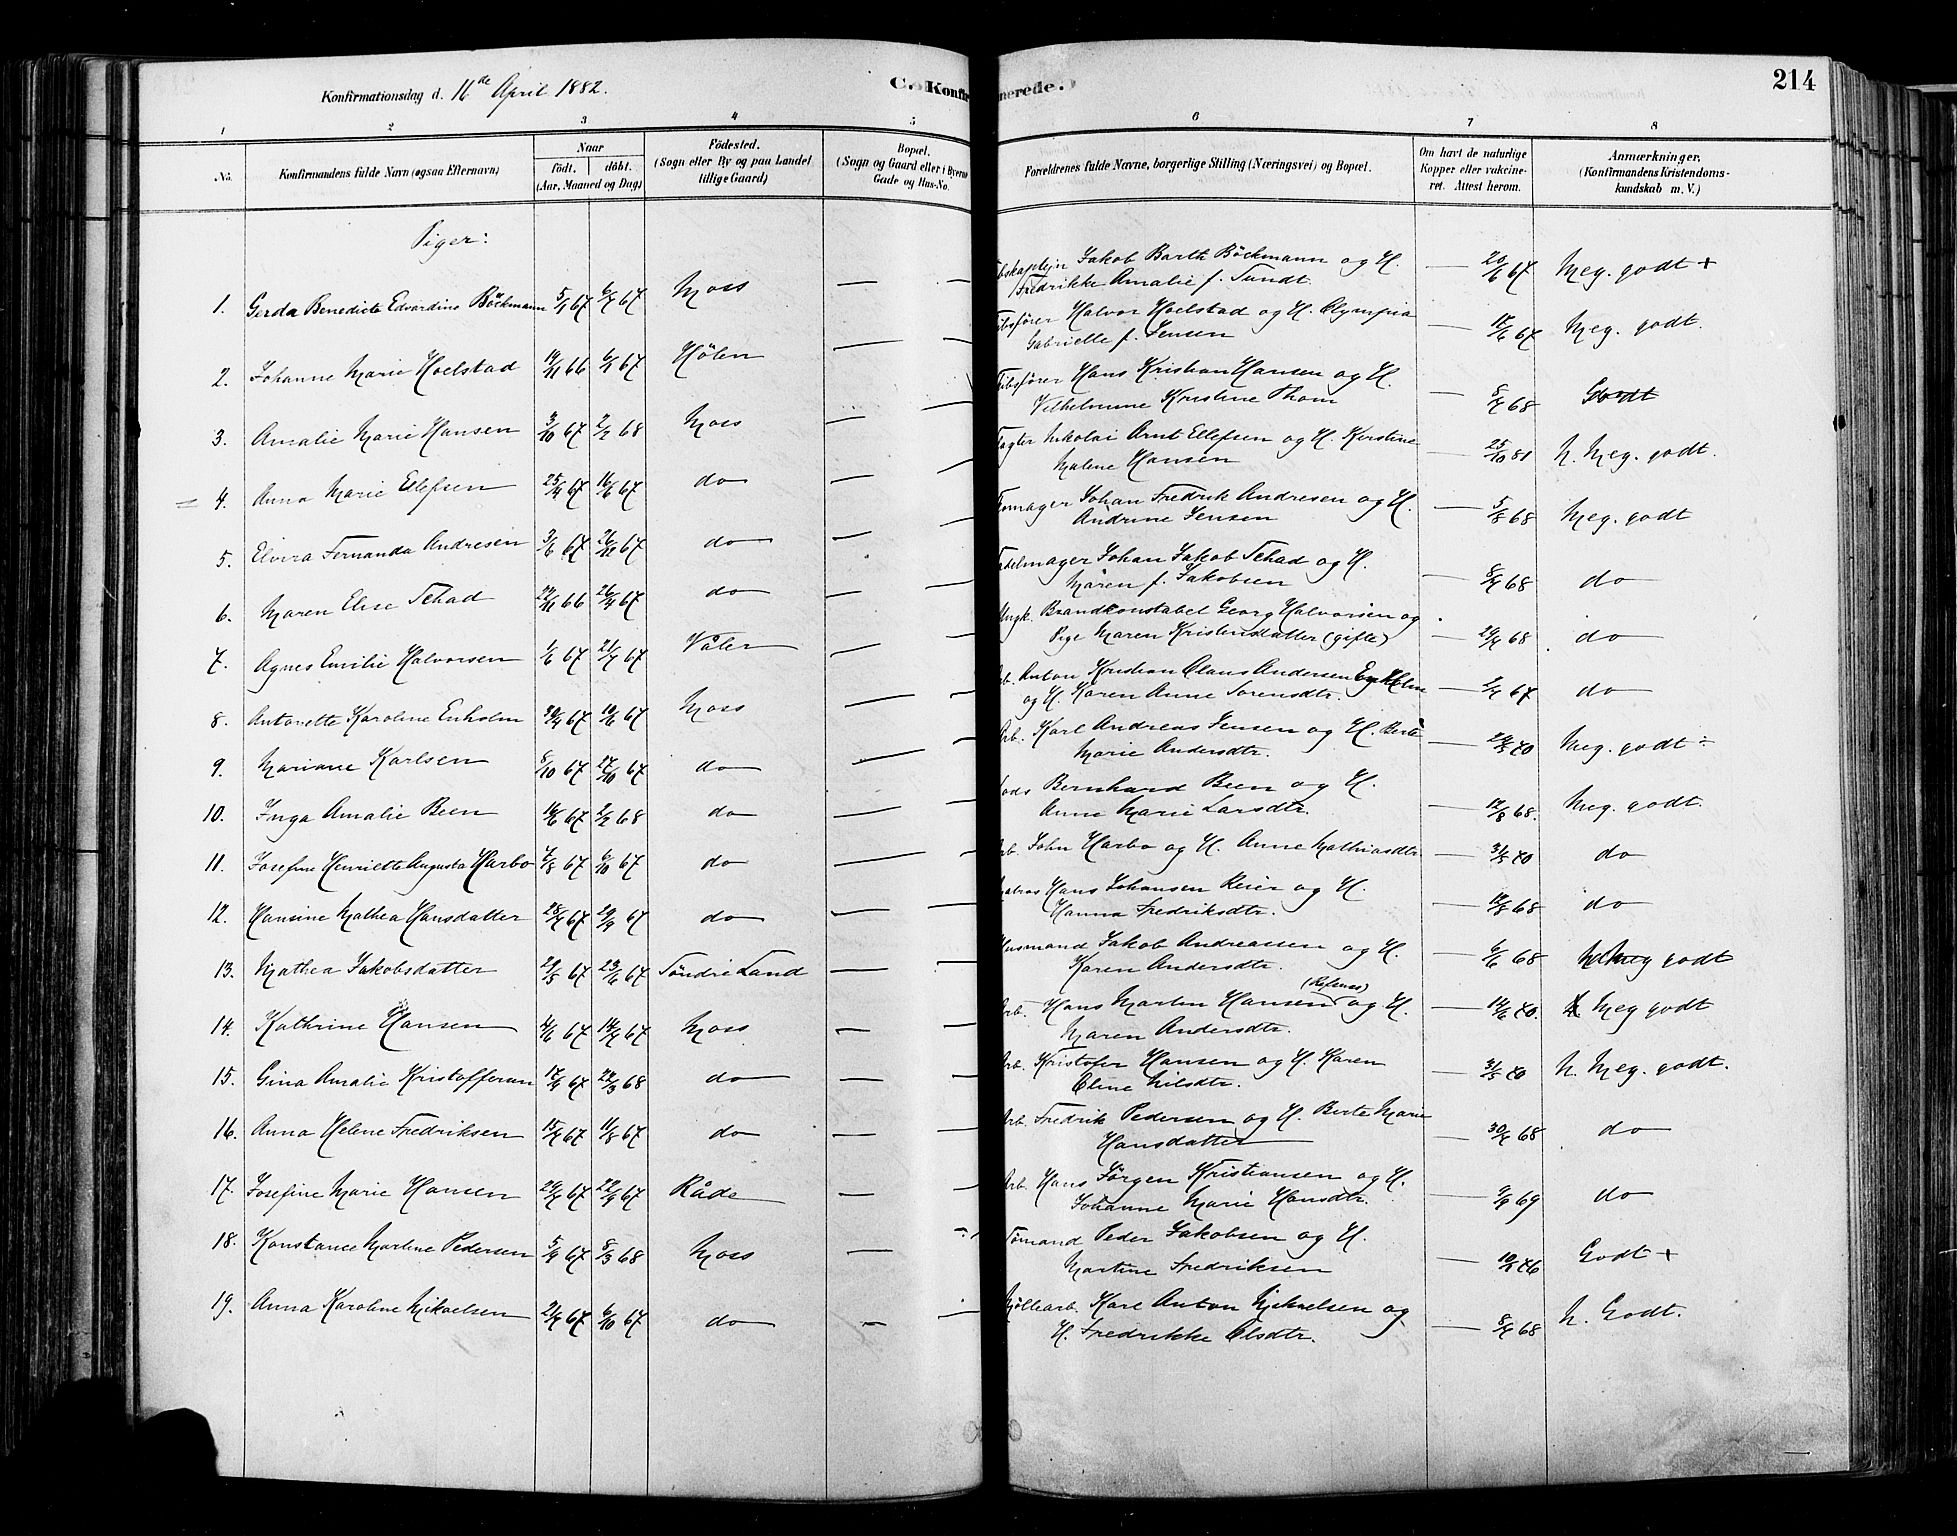 Konfirmationsdag d. 16de April 1882.
C. Konfirmerede.
214
1 2 3 4 5 6 7 8
No.
Konfirmandens fulde Navn (ogsaa Efternavn)
Naar
födt. döbt.
(Aar, Maaned og Dag)
Födested.
(Sogn eller By og paa Landet
tillige Gaard)
Bopæl.
(Sogn og Gaard eller i Byerne
Gade og Hus-No.
Forældrenes fulde Navne, borgerlige Stilling (Næringsvei) og Bopæl.
Om havt de naturlige
Kopper eller vakcine-
ret. Attest herom.
Anmærkninger,
(Konfirmandens Kristendoms-
kundskab m. V.)
Piger:
1. Gerda Benedicte Edvardine Böckmann 5/1 67 Moss — Jakob Barth Böckmann og H.
Fredrikke Amalie f. Tundt. — 20/6 67 Meg. godt +
2. Johanne Marie Hoelstad 19/11 66 6/1 67 Hölen — Halvor Hoelstad og H. Olympia
Gabrielle f. Jensen — 17/6 67 Meg. godt.
3. Amalie Marie Hansen 3/10 67 2/2 68 Moss — Hans Kristian Hansen og H.
Vilhelmine Kristine Thom — 68 Godt
4. Anna Marie Ellefsen 25/4 67 16/6 67 do — Nikolai Arnt Ellefsen og H. Kirstine
Malene Hansen — 25/10 81 N. Meg. godt.
5. Elvira Fernanda Andresen 3/6 67 67 do — Johan Fredrik Andresen og H.
Andrine Jensen — 5/8 68 Meg. godt
6. Maren Elise Schad 66 26/4 67 do — Johan Jakob Schad og H.
Maren f. Jakobsen — 68 do
7. Agnes Emilie Halvorsen 1/6 67 21/7 67 Våler — Ungk. Brandkonstabel Georg Halvorsen og
Pige Maren Kristensdatter (gifte) — 68 do
8. Antonette Karoline Enholm 67 10/6 67 Moss — Anton Kristian Claus Andersen Enholm
og H. Karen Anne Sorensdtr. — 67 do
9. Mariane Karlsen 8/10 67 27/10 67 do — Arb. Karl Andreas Jensen og H. Berte
Marie Andersdtr. — Meg. godt ÷
10. Inga Amalie Been 16/6 67 2/2 68 do — Bernhard Been og H.
Anne Marie Larsdtr. — 12/8 68. Meg. godt.
11. Josefine Henriette Augusta Harbo 67 6/10 67 do — Arb. John Harbo og H. Anne Mathiasdtr — do
12. Hansine Mathea Hansdatter 67 29/9 67 do — Matros Hans Johansen Reier og H.
Hanna Fredriksdtr. — 68 do
13. Mathea Jakobsdatter 29/5 67 23/6 67 Söndre Land — Husmand Jakob Andreassen og H.
Karen Andersdtr. — 6/6 68 Meg godt
14. Kathrine Hansen 67 67 Moss — Arb. Hans Martin Hansen (Refsnes) og H.
Maren Andersdtr. — Meg godt
15. Gina Amalie Kristoffersen 67 68 do — Arb. Kristofer Hansen og H. Karen
Oline Nilsdtr. — N. Meg. godt.
16. Anna Helene Fredriksen 67 11/8 67 do — Arb. Fredrik Pedersen og H. Berte Marie
Hansdatter — 68 do
17. Josefine Marie Hansen 67 67 Råde — Arb. Hans Jörgen Kristiansen og H.
Johanne Marie Hansdtr. — 69 do
18. Konstance Martine Pedersen 67 8/3 68 Moss — Tömand Peder Jakobsen og H.
Martine Fredriksen — Godt +
19. Anna Karoline Mikaelsen 67 6/10 67 do — Möllearb. Karl Anton Mikaelsen og
H. Fredrikke Olsdtr. — 68 N. Godt.